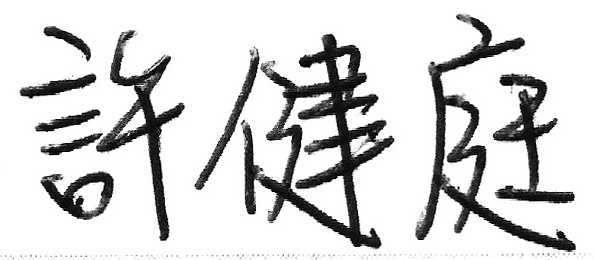 許健庭